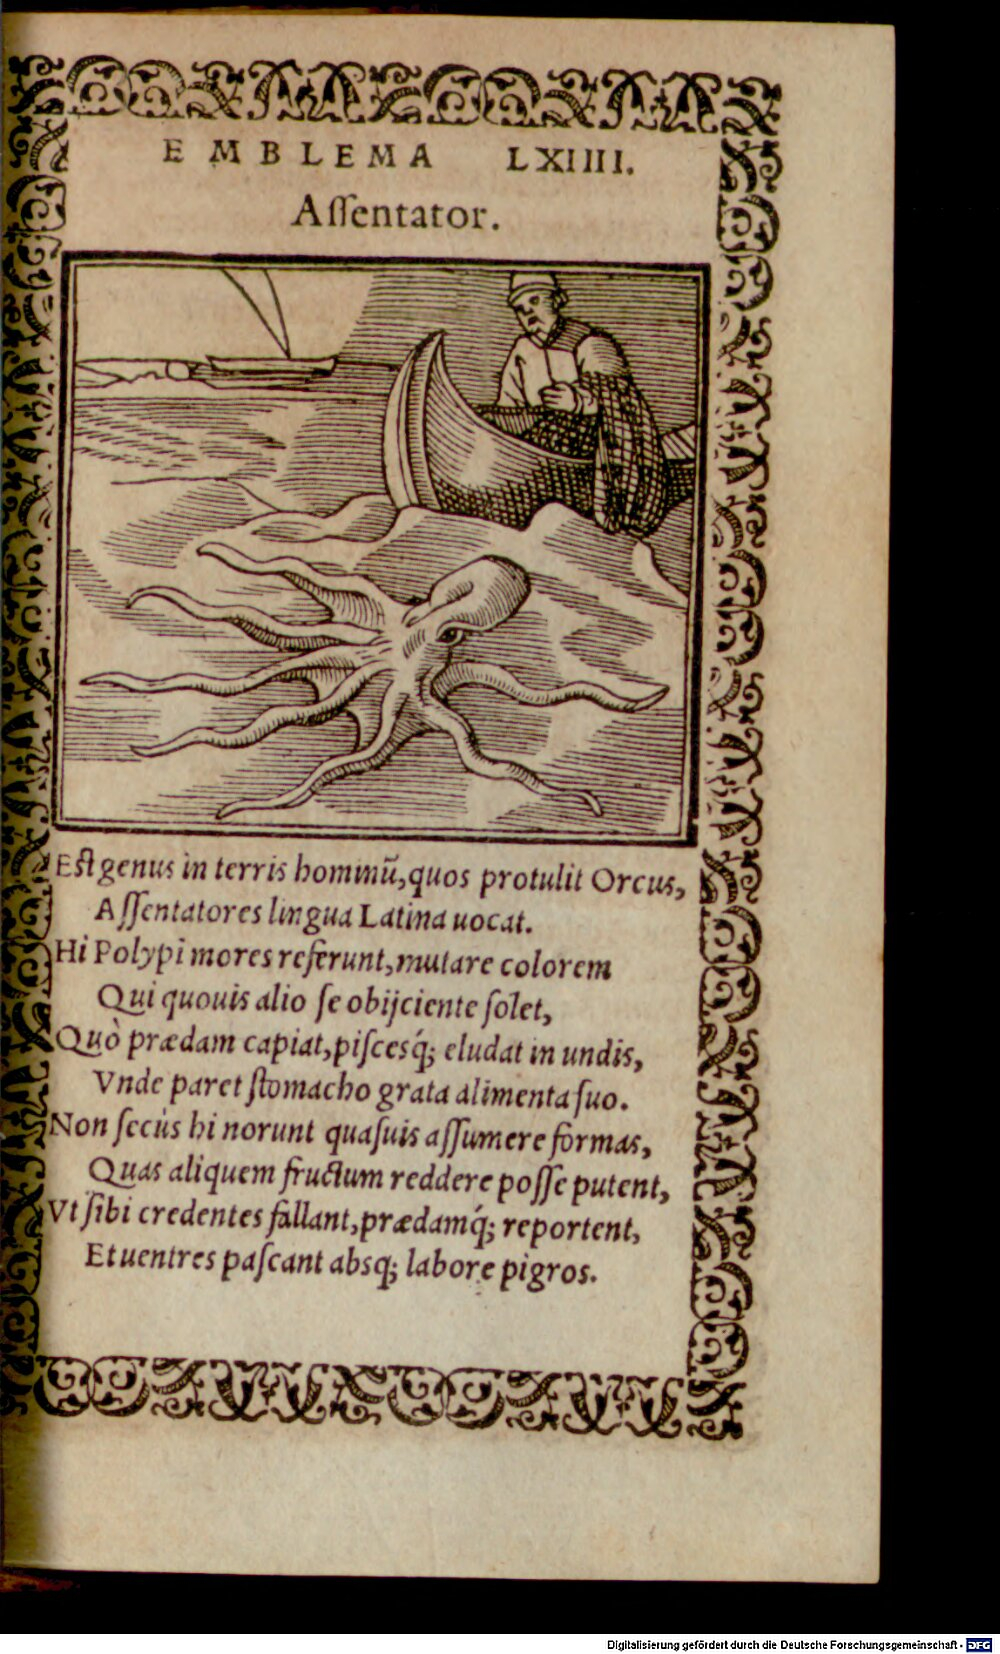 EMBLEMA LXIIII.
Aſſentator.
Eſt genus in terris hominū, quos protulit Orcus,
Aſſentatores lingua Latina uocat.
Hi Polypi mores referunt, mutare colorem
Qui quouis alio ſe obijciente ſolet,
Quò prædam capiat, piſcesq́; eludat in undis,
Vnde paret ſtomacho grata alimenta ſuo.
Non ſecùs hi norunt quaſuis aſſumere formas,
Quas aliquem fructum reddere poſſe putent,
Vt ſibi credentes fallant, prædamq́; reportent,
Et uentres paſcant absq; labore pigros.
Digitalisierung gefördert durch die Deutsche Forschungsgemeinschaft - DFG